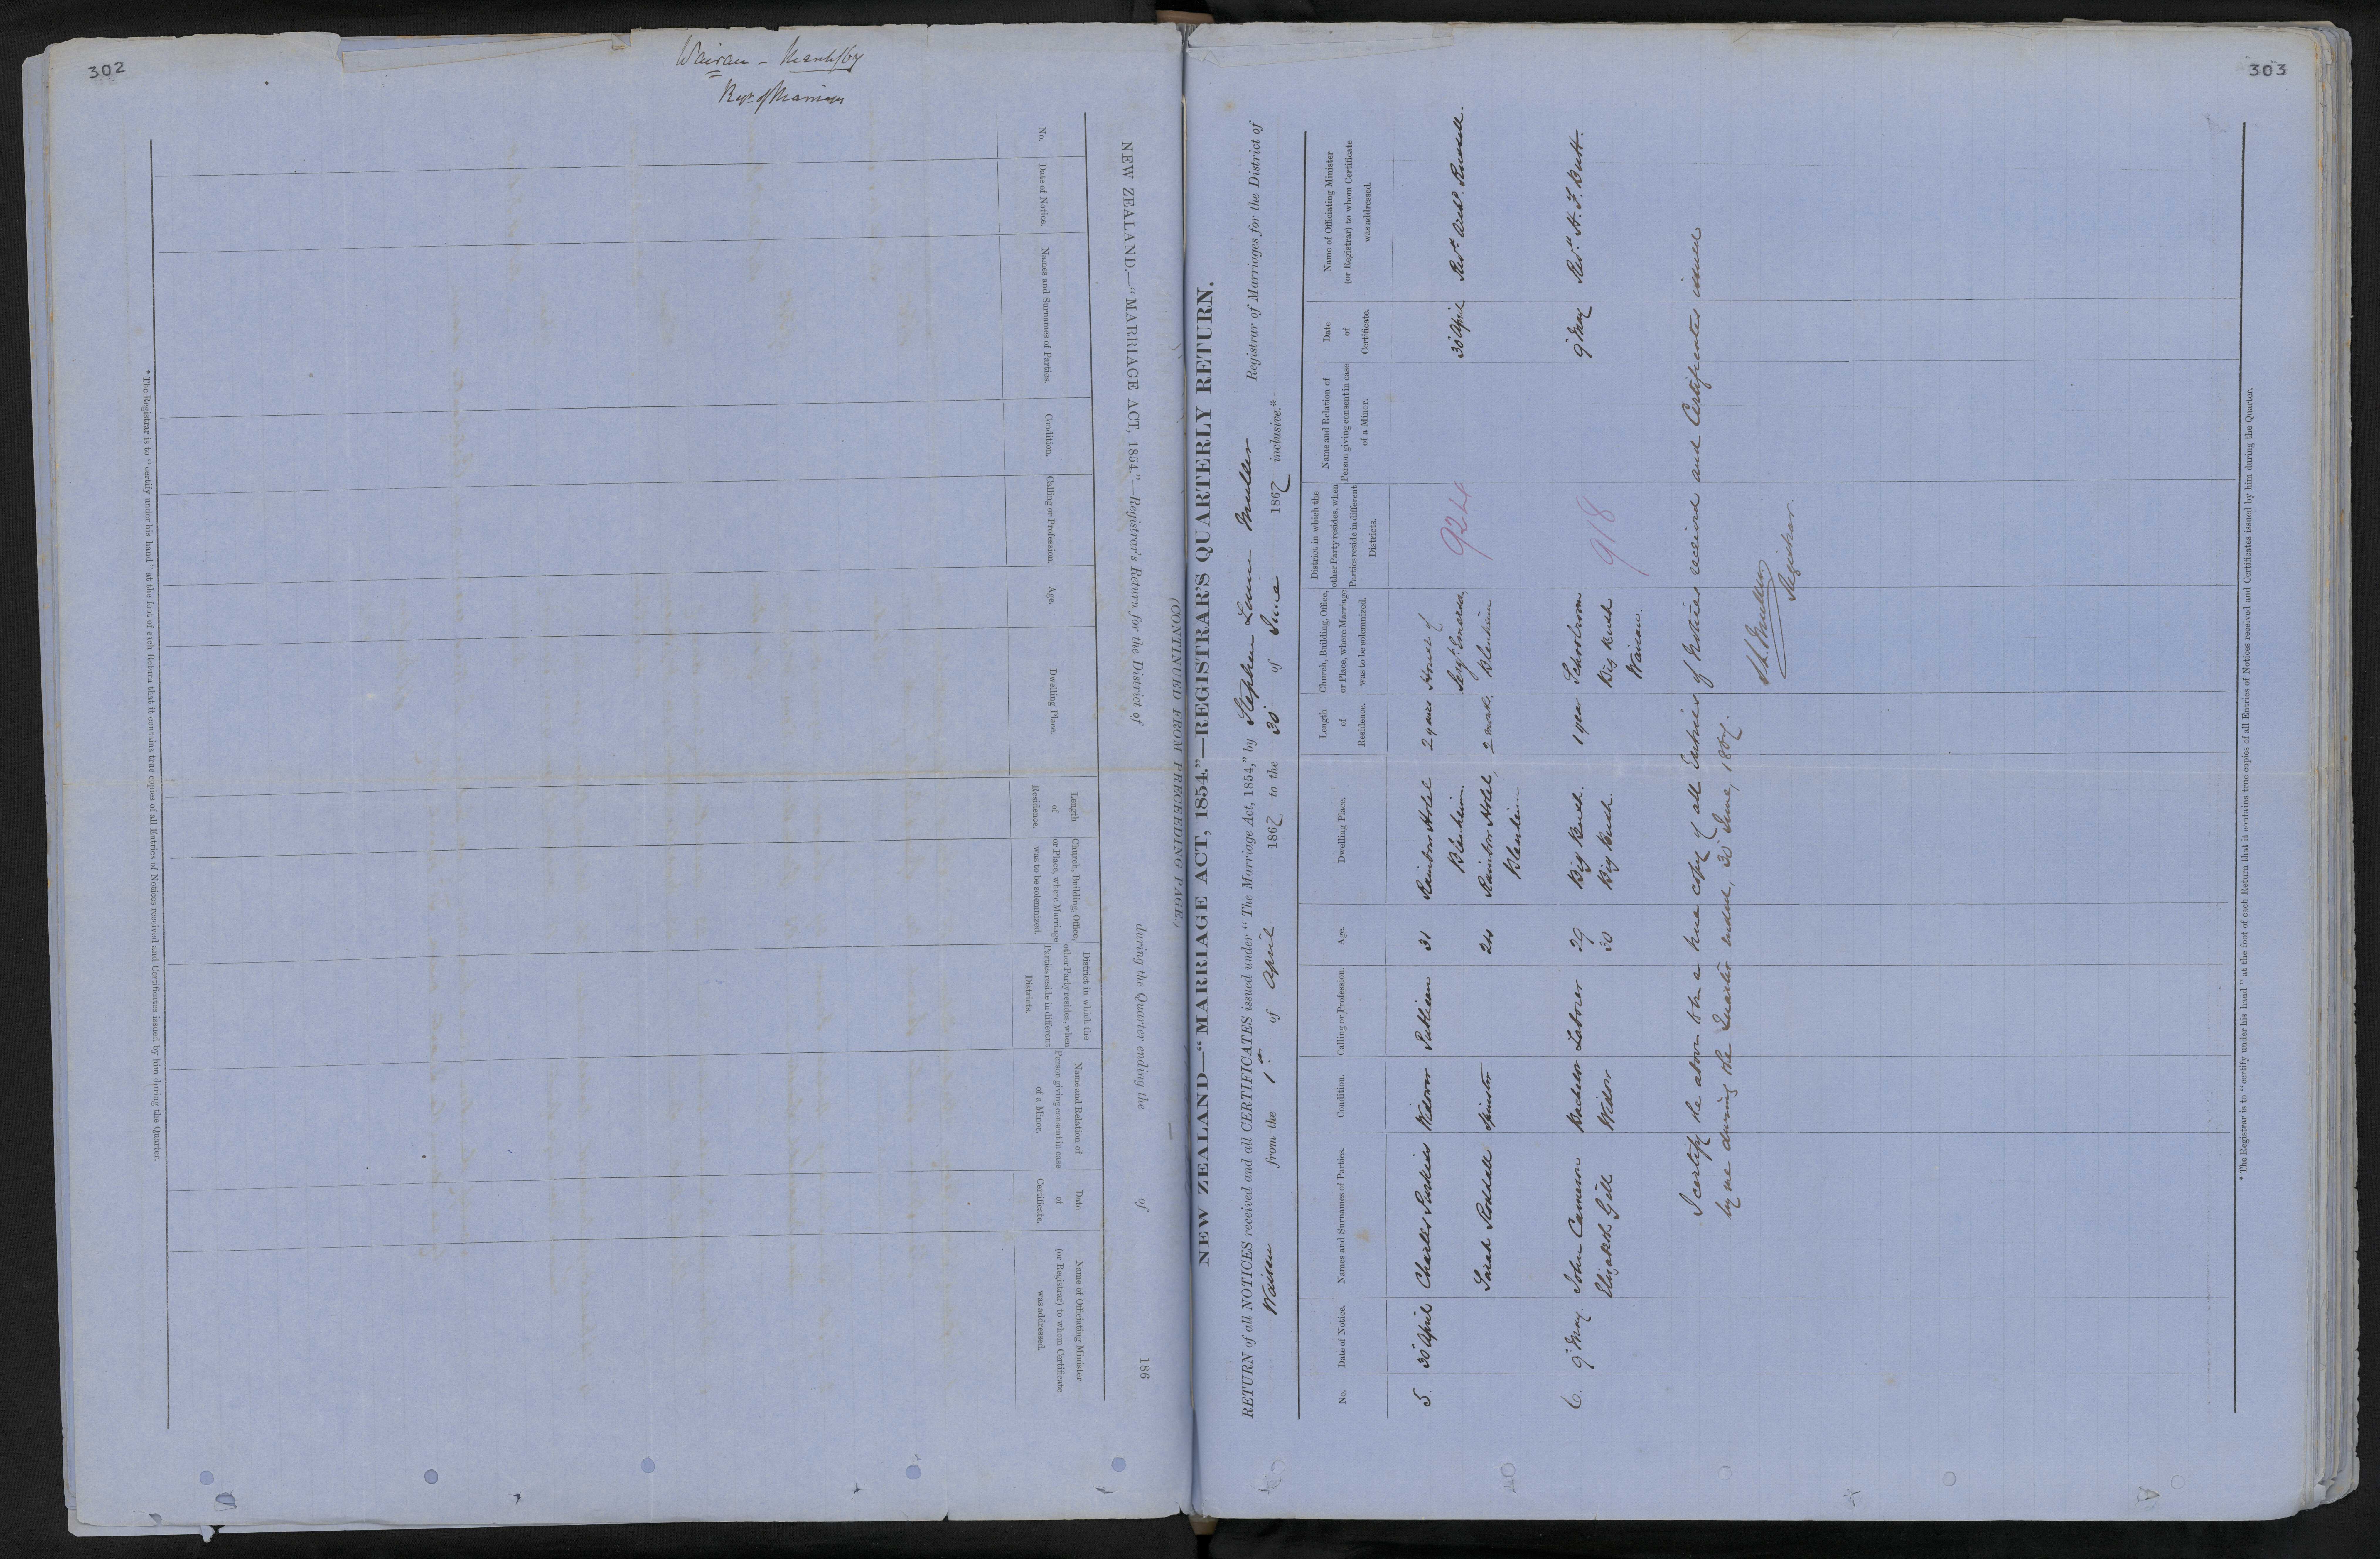 302
Wairau - March/67
NEW ZEALAND.—"MARRIAGE ACT, 1854."—Registrar's Return for the District of during the Quarter ending the of 186
(CONTINUED FROM PRECEDING PAGE.)
No. Date of Notice. Names and Surnames of Parties. Condition. Calling or Profession. Age. Dwelling Place. Length of Residence. Church, Building, Office, or Place, where Marriage was to be solemnized. District in which the other Party resides, when Parties reside in different Districts. Name and Relation of Person giving consent in case of a Minor. Date of Certificate. Name of Officiating Minister (or Registrar) to whom Certificate was addressed.
* The Registrar is to "certify under his hand" at the foot of each Return that it contains true copies of all Entries of Notices received and Certificates issued by him during the Quarter.
303
NEW ZEALAND—"MARRIAGE ACT, 1854."—REGISTRAR'S QUARTERLY RETURN.
RETURN of all NOTICES received and all CERTIFICATES issued under "The Marriage Act, 1854," by Stephen Lunn Muller Registrar of Marriages for the District of
Wairau from the 1st of April 1867 to the 30 of June 1867 inclusive.*
No. Date of Notice. Names and Surnames of Parties. Condition. Calling or Profession. Age. Dwelling Place. Length of Residence. Church, Building, Office, or Place, where Marriage was to be solemnized. District in which the other Party resides, when Parties reside in different Districts. Name and Relation of Person giving consent in case of a Minor. Date of Certificate. Name of Officiating Minister (or Registrar) to whom Certificate was addressed.
5. 30 April Charles Widower 31 Hotel 2 years House of 30 April Revd. Archd. Russell.
Blenheim. Sergt. 924
Sarah Roddall Spinster 24 Hotel, 2 weeks. Blenheim
Blenheim.
6. 9 May John Cameron Bachelor Laborer 29 Big Bush. 1 year Schoolroom 918 9 May Revd. H. F. Butt.
Elizabeth Gill Widow 30 Big Bush. Big Bush
Wairau.
I certify the above to be a true copy of all Entries of Notices received and Certificates issued
by me during the Quarter ended, 30 June, 1867.
S. L. Muller
Registrar.
* The Registrar is to "certify under his hand" at the foot of each Return that it contains true copies of all Entries of Notices received and Certificates issued by him during the Quarter.